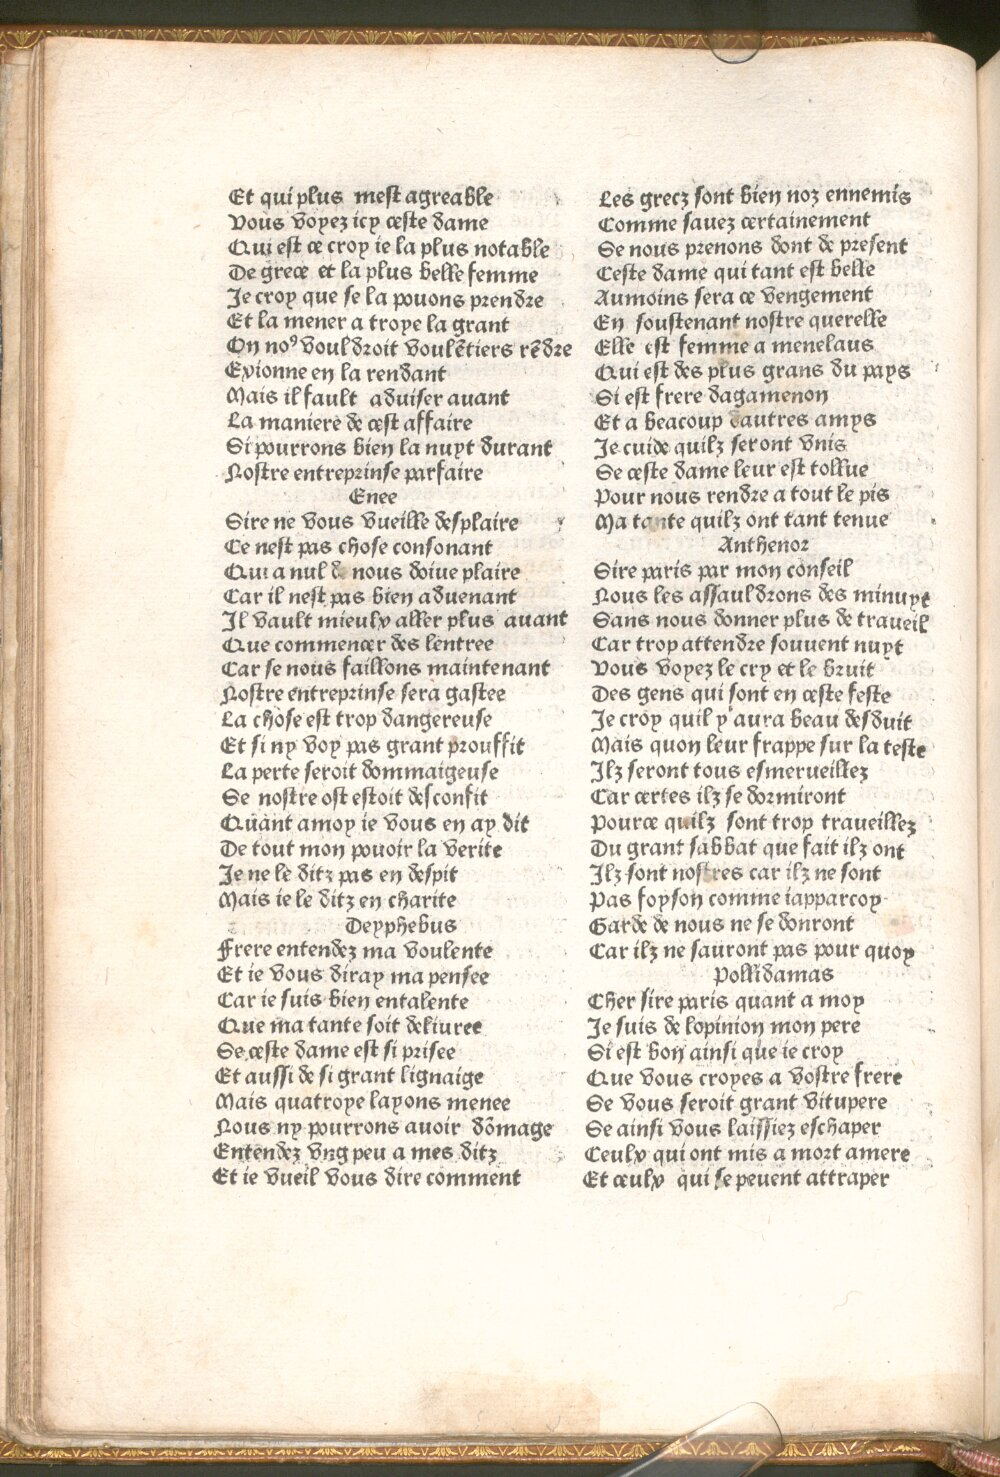 Et qui plus mest agreable
Vous voyez icy ceste dame
Qui est ce croy ie la plus notable
De grece et la plus belle femme
Je croy que se la pouons prendre
Et la mener a troye la grant
On noꝰ vouldroit voulẽtiers rẽdre
Exionne en la rendant
Mais il fault aduiser auant
La maniere de cest affaire
Si pourrons bien la nuyt durant
Nostre entreprinse parfaire
Enee
Sire ne vous vueille desplaire
Ce nest pas chose consonant
Qui a nul de nous doiue plaire
Car il nest pas bien aduenant
Il vault mieulx aller plus auant
Que commencer des lentree
Car se nous faillons maintenant
Nostre entreprinse sera gastee
La chose est trop dangereuse
Et si ny voy pas grant prouffit
La perte seroit dommaigeuse
Se nostre ost estoit desconfit
Quant amoy ie vous en ay dit
De tout mon pouoir la verite
Je ne le ditz pas en despit
Mais ie le ditz en charite
Deyphebus
Frere entendez ma voulente
Et ie vous diray ma pensee
Car ie suis bien entalente
Que ma tante soit deliuree
Se ceste dame est si prisee
Et aussi de si grant lignaige
Mais quatroye layons menee
Nous ny pourrons auoir dõmage
Entendez vng peu a mes ditz
Et ie vueil vous dire comment
Les grecz sont bien noz ennemis
Comme sauez certainement
Se nous prenons dont de present
Ceste dame qui tant est belle
Aumoins sera ce vengement
En soustenant nostre querelle
Elle est femme a menelaus
Qui est des plus grans du pays
Si est frere dagamenon
Et a beacoup dautres amys
Je cuide quilz seront vnis
Se ceste dame leur est tollue
Pour nous rendre a tout le pis
Ma tante quilz ont tant tenue
Anthenor
Sire paris par mon conseil
Nous les assauldrons des minuyt
Sans nous donner plus de traueil
Car trop attendre souuent nuyt
Vous voyez le cry et le bruit
Des gens qui sont en ceste feste
Je croy quil y aura beau desduit
Mais quon leur frappe sur la teste
Ilz seront tous esmerueillez
Car certes ilz se dormiront
Pource quilz sont trop traueillez
Du grant sabbat que fait ilz ont
Ilz sont nostres car ilz ne sont
Pas foyson comme iapparcoy
Garde de nous ne se donront
Car ilz ne sauront pas pour quoy
Pollidamas
Cher sire paris quant a moy
Je suis de lopinion mon pere
Si est bon ainsi que ie croy
Que vous croyes a vostre frere
Se vous seroit grant vitupere
Se ainsi vous laissiez eschaper
Ceulx qui ont mis a mort amere
Et ceulx qui se peuent attraper